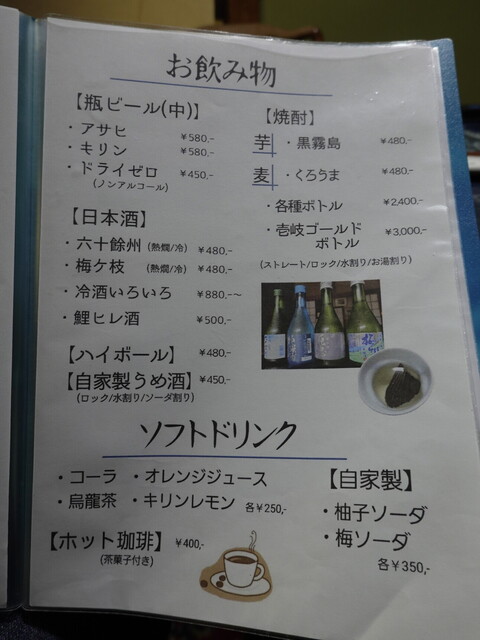 お飲み物
【瓶ビール(中)】
・アサヒ ￥580.-
・キリン ￥580.-
・ドライゼロ ￥450.-
(ノンアルコール)
【日本酒】
・六十餘州 (熱燗/冷) ￥480.-
・梅ケ枝 (熱燗/冷) ￥480.-
・冷酒いろいろ ￥880.-～
・鯉ヒレ酒 ￥500.-
【ハイボール】 ￥480.-
【自家製うめ酒】 ￥450.-
(ロック/水割り/ソーダ割り)
【焼酎】
芋 ・黒霧島 ￥480.-
麦 ・くろうま ￥480.-
・各種ボトル ￥2,400.-
・壱岐ゴールド ￥3,000.-
ボトル
(ストレート/ロック/水割り/お湯割り)
ソフトドリンク
・コーラ ・オレンジジュース
・烏龍茶 ・キリンレモン 各￥250,-
【ホット珈琲】 ￥400,-
(茶菓子付き)
【自家製】
・柚子ソーダ
・梅ソーダ
各￥350,-